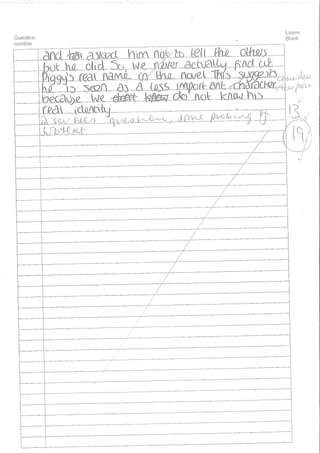 Question
number
Leave
Blank
and asked him not to tell the others
but he did. So, we never actually find out
Piggy's real name in the novel. This suggests
he is seen as a less important character,
because we don't know do not know his
real identity
question, some probing of
13
19